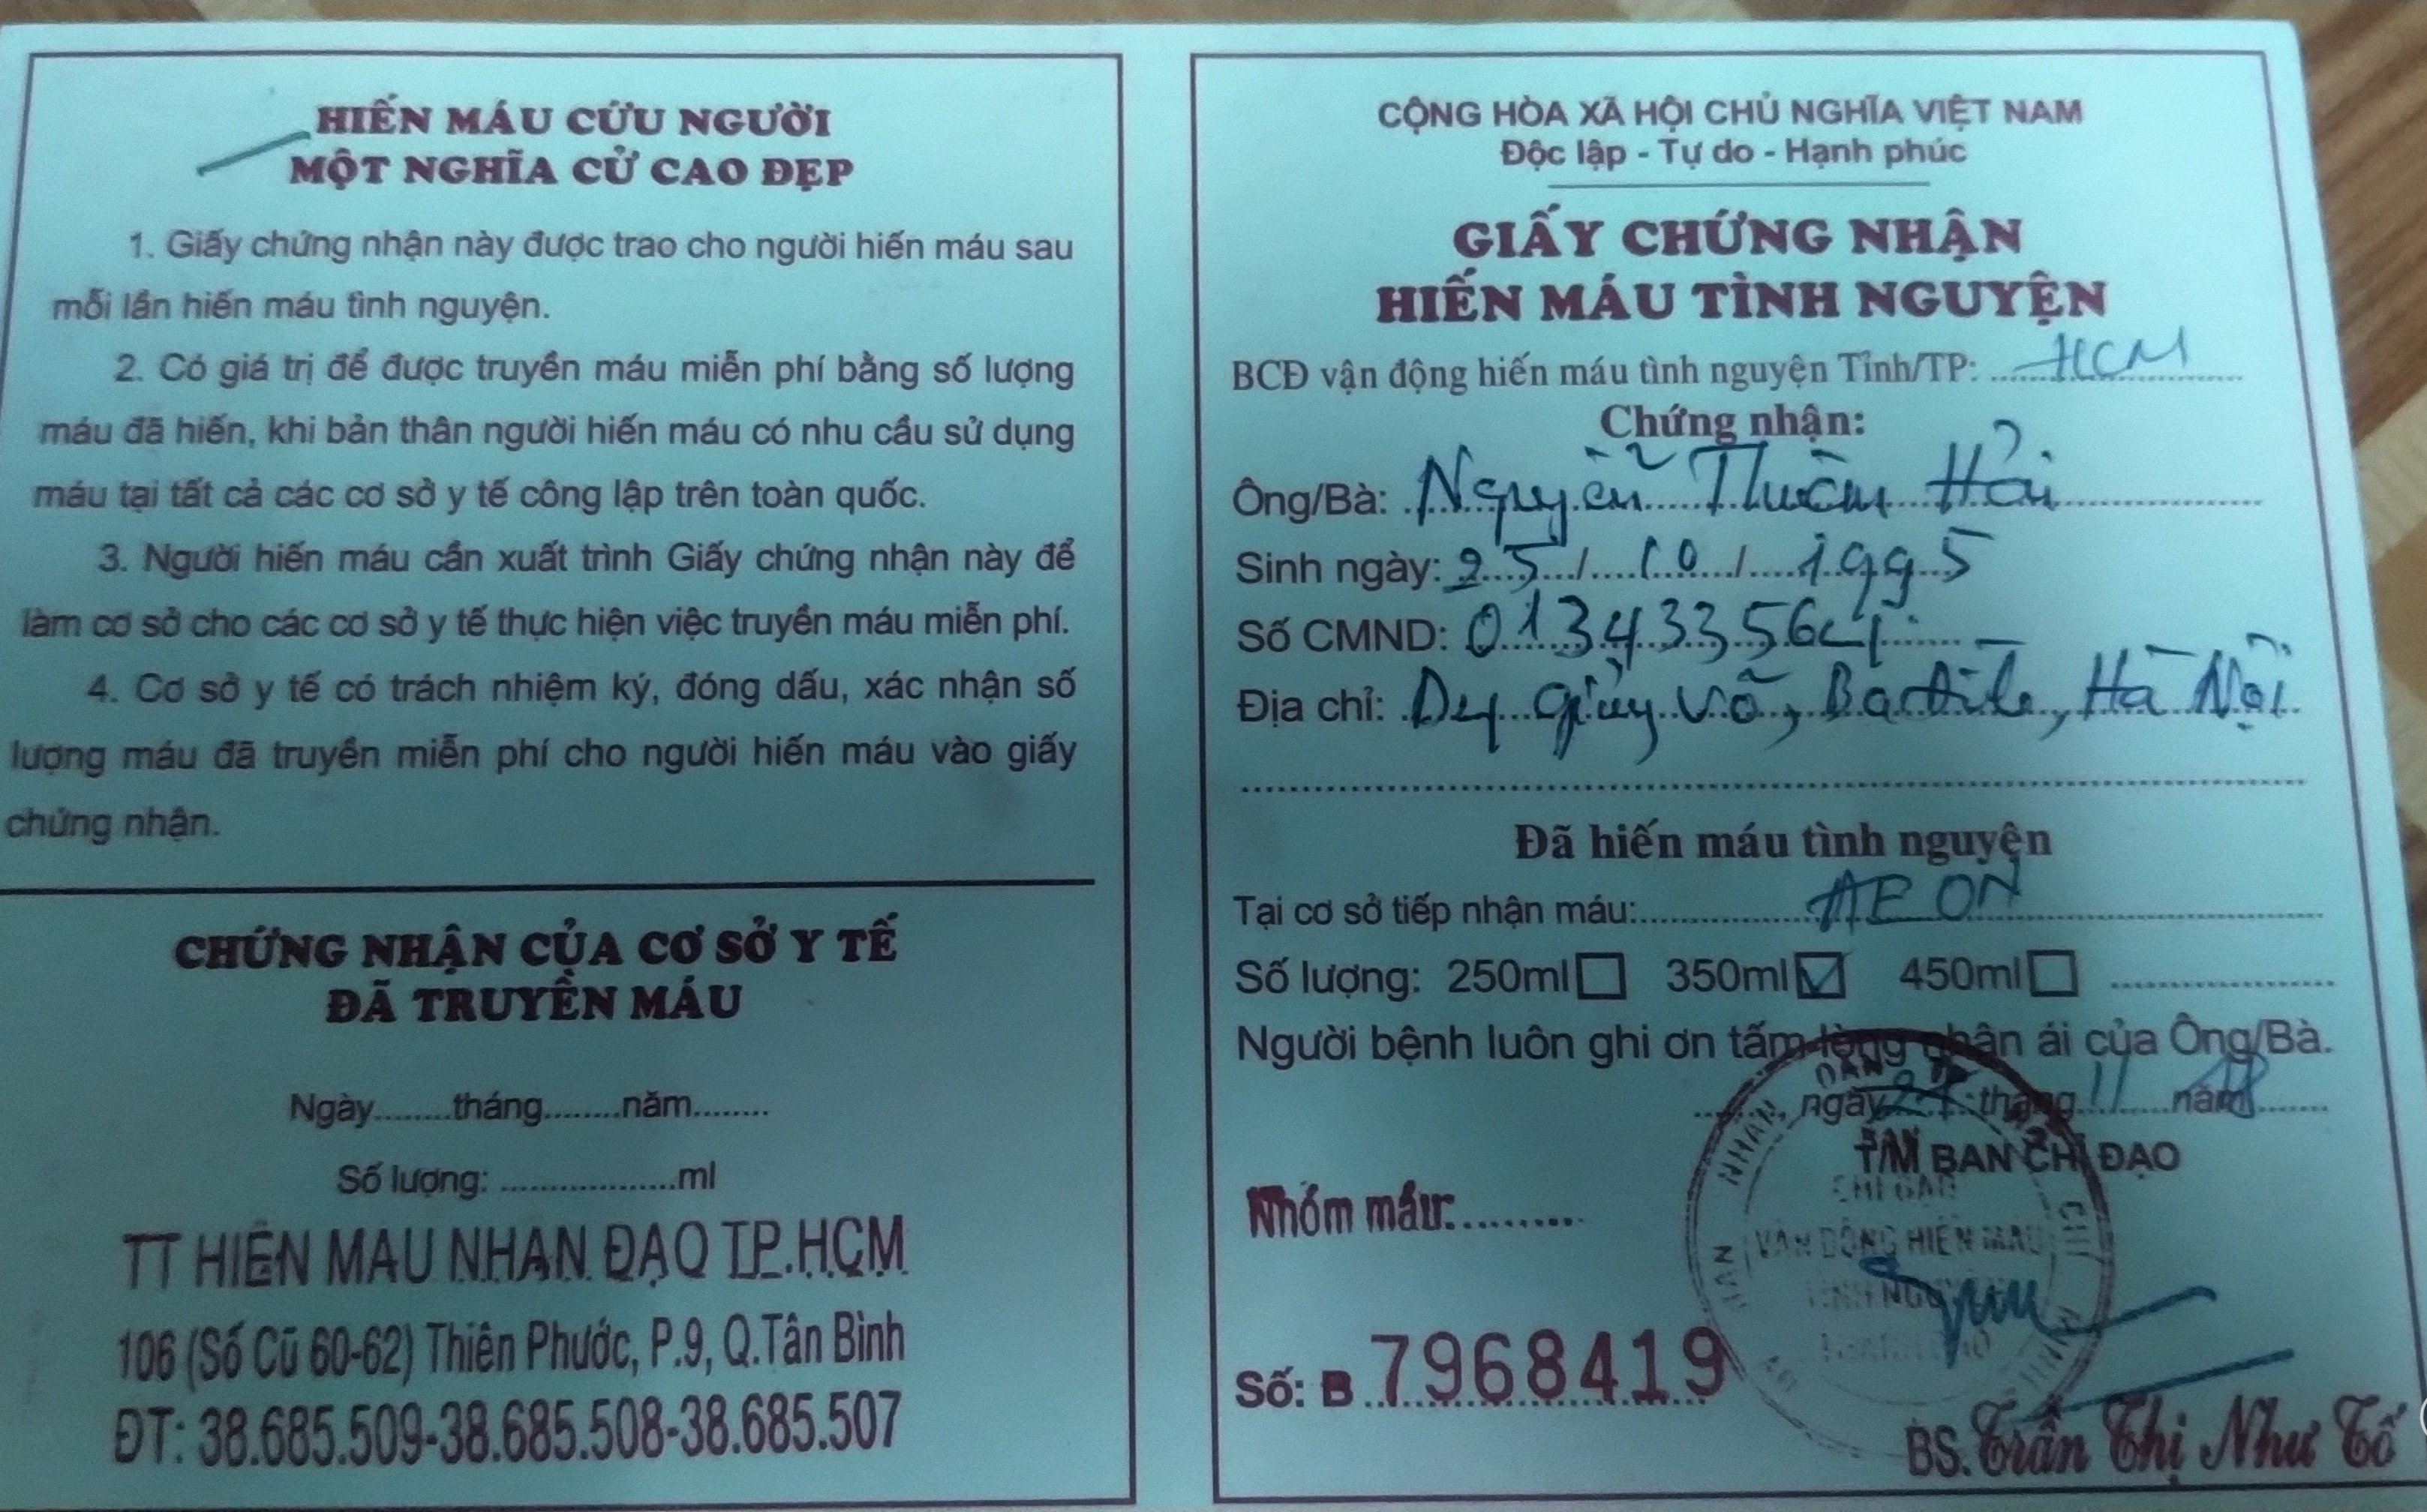 HIẾN MÁU CỨU NGƯỜI
MỘT NGHĨA CỬ CAO ĐẸP
1. Giấy chứng nhận này được trao cho người hiến máu sau
mỗi lần hiến máu tình nguyện.
2. Có giá trị để được truyền máu miễn phí bằng số lượng
máu đã hiến, khi bản thân người hiến máu có nhu cầu sử dụng
máu tại tất cả các cơ sở y tế công lập trên toàn quốc.
3. Người hiến máu cần xuất trình Giấy chứng nhận này để
làm cơ sở cho các cơ sở y tế thực hiện việc truyền máu miễn phí.
4. Cơ sở y tế có trách nhiệm ký, đóng dấu, xác nhận số
lượng máu đã truyền miễn phí cho người hiến máu vào giấy
chứng nhận.
CHỨNG NHẬN CỦA CƠ SỞ Y TẾ
ĐÃ TRUYỀN MÁU
Ngày........tháng........năm........
Số lượng: ..................ml
TT HIẾN MÁU NHÂN ĐẠO TP.HCM
106 (Số Cũ 60-62) Thiên Phước, P.9, Q.Tân Bình
ĐT: 38.685.509-38.685.508-38.685.507
CỘNG HÒA XÃ HỘI CHỦ NGHĨA VIỆT NAM
Độc lập - Tự do - Hạnh phúc
GIẤY CHỨNG NHẬN
HIẾN MÁU TÌNH NGUYỆN
BCĐ vận động hiến máu tình nguyện Tỉnh/TP: HCM
Chứng nhận:
Ông/Bà: Nguyễn Hải
Sinh ngày: 25/10/1995
Số CMND: 013433564
Địa chỉ: Võ, Ba Đình, Hà Nội
Đã hiến máu tình nguyện
Tại cơ sở tiếp nhận máu: AEON
Số lượng: 250ml 350ml 450ml
Người bệnh luôn ghi ơn tấm lòng nhân ái của Ông/Bà.
ngày tháng 11 năm 18
T/M BAN CHỈ ĐẠO
VẬN ĐỘNG HIẾN MÁU
Nhóm máu:
Số: B 7968419
BS. Trần Thị Như Tố